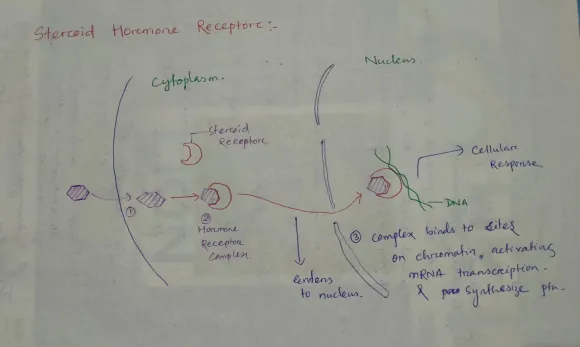 Steroid Hormone Receptors:-
Cytoplasm.
Nucleus.
Steroid
Receptors
Cellular
Response
DNA
①
②
Hormone
Receptor
Complex.
enters
to nucleus.
③ Complex binds to sites
on chromatin, activating
mRNA transcription.
& synthesize ptn.